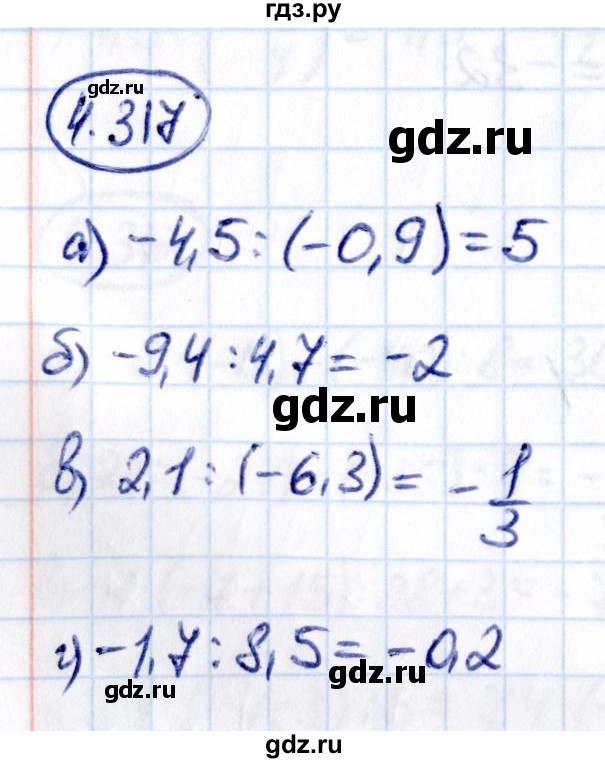 гдз.ру
4.317
gdz.ru
gdz.ru
а) -4,5 : (-0,9) = 5
б) -9,4 : 4,7 = -2
gdz.ru
в) 2,1 : (-6,3) = - 1/3
г) -1,7 : 8,5 = -0,2
gdz.ru
gdz.ru
gdz.ru